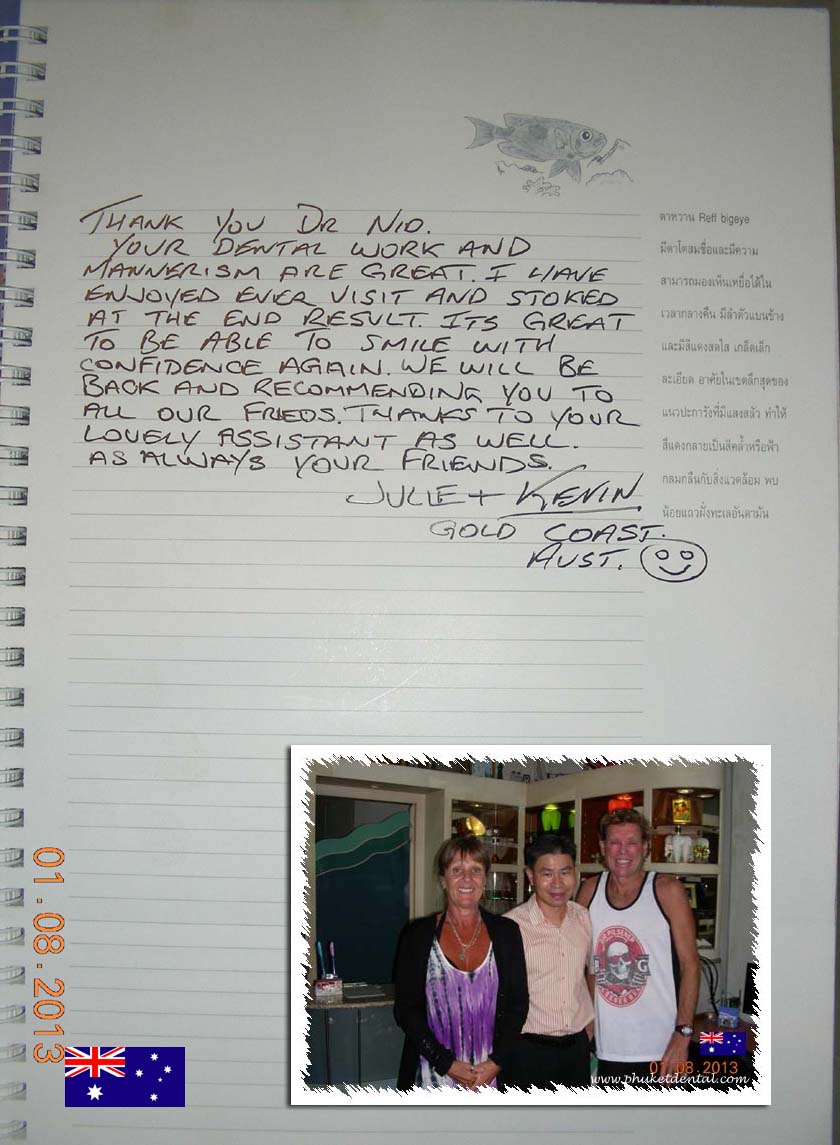 THANK YOU DR NID.
YOUR DENTAL WORK AND
MANNERISM ARE GREAT. I HAVE
ENJOYED EVER VISIT AND STOKED
AT THE END RESULT. ITS GREAT
TO BE ABLE TO SMILE WITH
CONFIDENCE AGAIN. WE WILL BE
BACK AND RECOMMENDING YOU TO
ALL OUR FRIEDS. THANKS TO YOUR
LOVELY ASSISTANT AS WELL.
AS ALWAYS YOUR FRIENDS.
JULIE + KEVIN
GOLD COAST.
AUST.
ตาหวาน Reff bigeye
มีตาโตสมชื่อและมีความ
สามารถมองเห็นเหยื่อได้ใน
เวลากลางคืน มีลำตัวแบนข้าง
และมีสีแดงสดใส เกล็ดเล็ก
ละเอียด อาศัยในเขตลึกสุดของ
แนวปะการังที่มีแสงสลัว ทำให้
สีแดงกลายเป็นสีคล้ำหรือฟ้า
กลมกลืนกับสิ่งแวดล้อม พบ
น้อยแถวฝั่งทะเลอันดามัน
01.08.2013
PILSENER
B G
01.08.2013
www.phuketdental.com